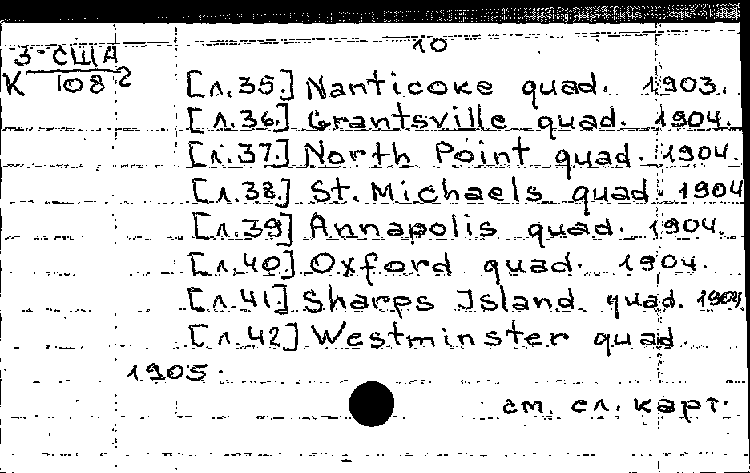 10
3-США
К 108 2
[л.35.] Nanticoke quad. 1903.
[л.36.] Grantsville quad. 1904.
[л.37.] North Point quad. 1904
[л.38.] St. Michaels quad. 1904
[л.39] Annapolis quad. 1904.
[л.40.] Oxford quad. 1904.
[л.41.] Sharps Island quad. 1904.
[л.42] Westminster quad.
1905.
см. сл. карт.